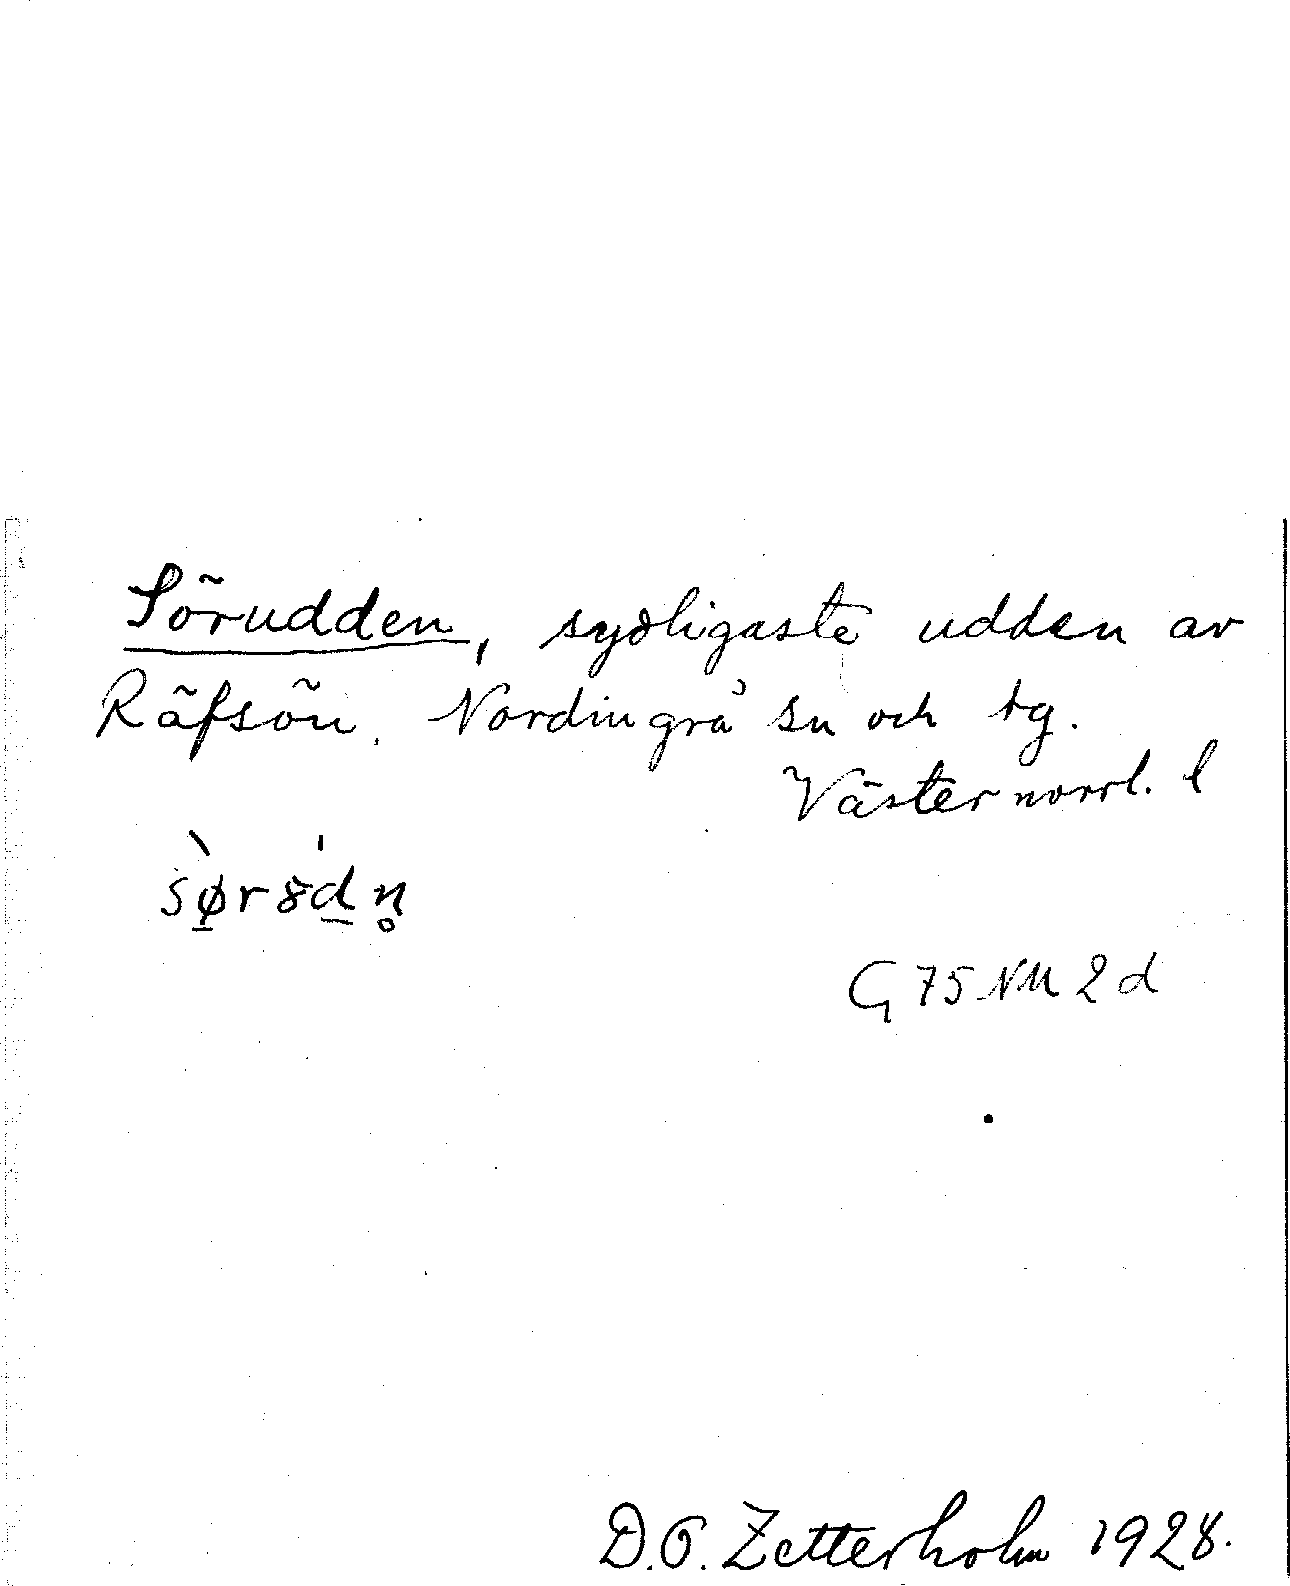 Sörudden, sydligaste udden av
Räfsön. Nordingrå sn och tg.
Västernorrl. l
G 75 NM 2 d
D. O. Zetterholm 1928.